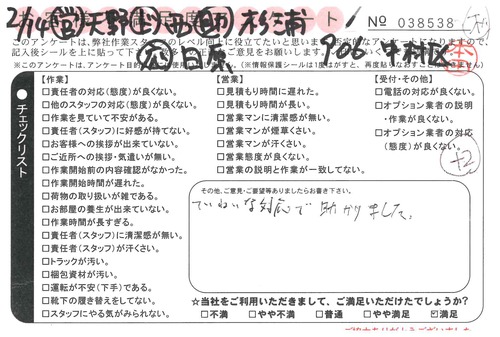 2/14 天野 杉浦
906 中村区
No 038538
このアンケートは、弊社作業スタッフのレベル向上に役立てたいと思いま
記入後シールを上に貼って下
見をお願いします。
※このアンケートは、アンケート目的
(※情報保護シールは1度はがすと、再度貼りなおすこと
チェックリスト
【作業】
□責任者の対応(態度)が良くない。
□他のスタッフの対応(態度)が良くない。
□作業を見ていて不安がある。
□責任者(スタッフ)に好感が持てない。
□お客様への挨拶が出来ていない。
□ご近所への挨拶・気遣いが無い。
□作業開始前の内容確認がなかった。
□作業開始時間が遅れた。
□荷物の取り扱いが雑である。
□お部屋の養生が出来ていない。
□作業時間が長すぎる。
□責任者(スタッフ)に清潔感が無い。
□責任者(スタッフ)が汗くさい。
□トラックが汚い。
□梱包資材が汚い。
□運転が不安(下手)である。
□靴下の履き替えをしてない。
□スタッフにやる気がみられない。
【営業】
□見積もり時間に遅れた。
□見積もり時間が長い。
□営業マンに清潔感が無い。
□営業マンが煙草くさい。
□営業マンが汗くさい。
□営業態度が良くない。
□営業の説明と作業が一致してない。
【受付・その他】
□電話の対応が良くない。
□オプション業者の説明
・作業が良くない。
□オプション業者の対応
(態度)が良くない。
+2
その他、ご意見・ご要望等ありましたらお書き下さい。
ていねいな対応で助かりました。
☆当社をご利用いただきまして、ご満足いただけたでしょうか?
□不満 □やや不満 □普通 □やや満足 ☑満足